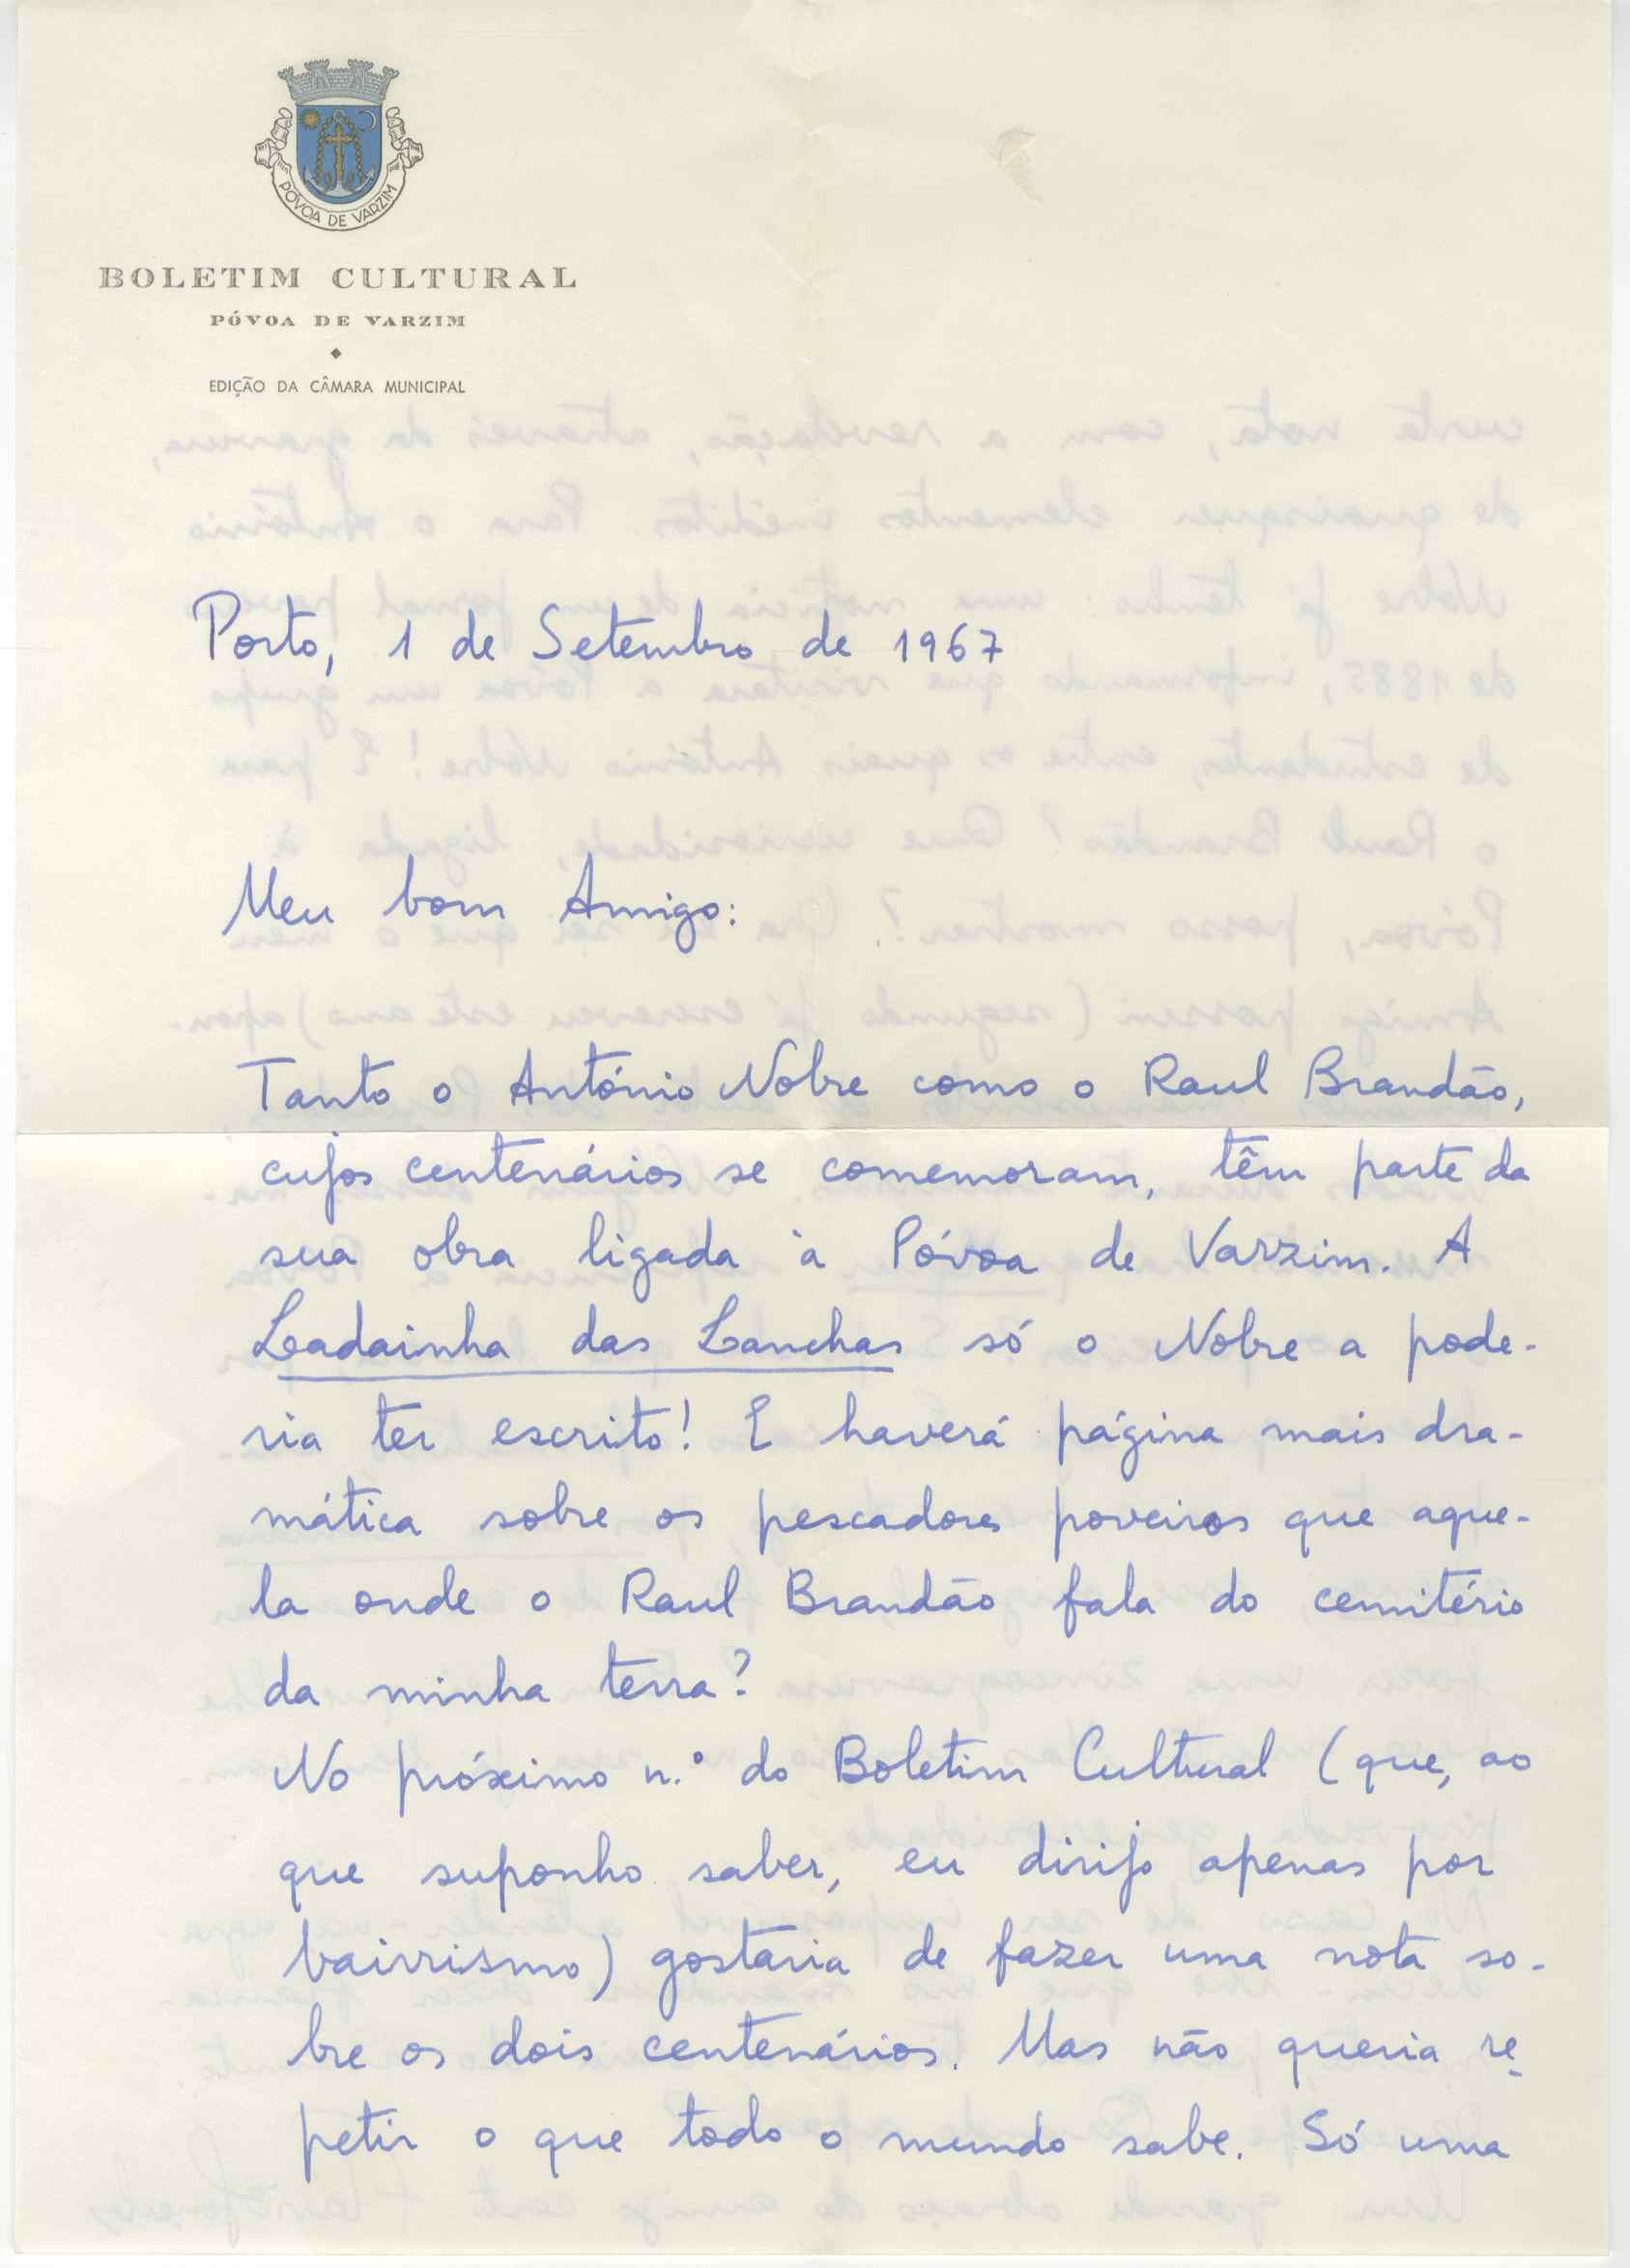 PÓVOA DE VARZIM
BOLETIM CULTURAL
PÓVOA DE VARZIM
EDIÇÃO DA CÂMARA MUNICIPAL
Porto, 1 de Setembro de 1967
Meu bom Amigo:
Tanto o António Nobre como o Raul Brandão,
cujos centenários se comemoram, têm parte da
sua obra ligada à Póvoa de Varzim. A
Ladainha das Lanchas só o Nobre a pode-
ria ter escrito! E haverá página mais dra-
mática sobre os pescadores poveiros que aque-
la onde o Raul Brandão fala do cemitério
da minha terra?
No próximo n.º do Boletim Cultural (que, ao
que suponho saber, eu dirijo apenas por
bairrismo) gostaria de fazer uma nota so-
bre os dois centenários. Mas não queria re-
petir o que todo o mundo sabe. Só uma